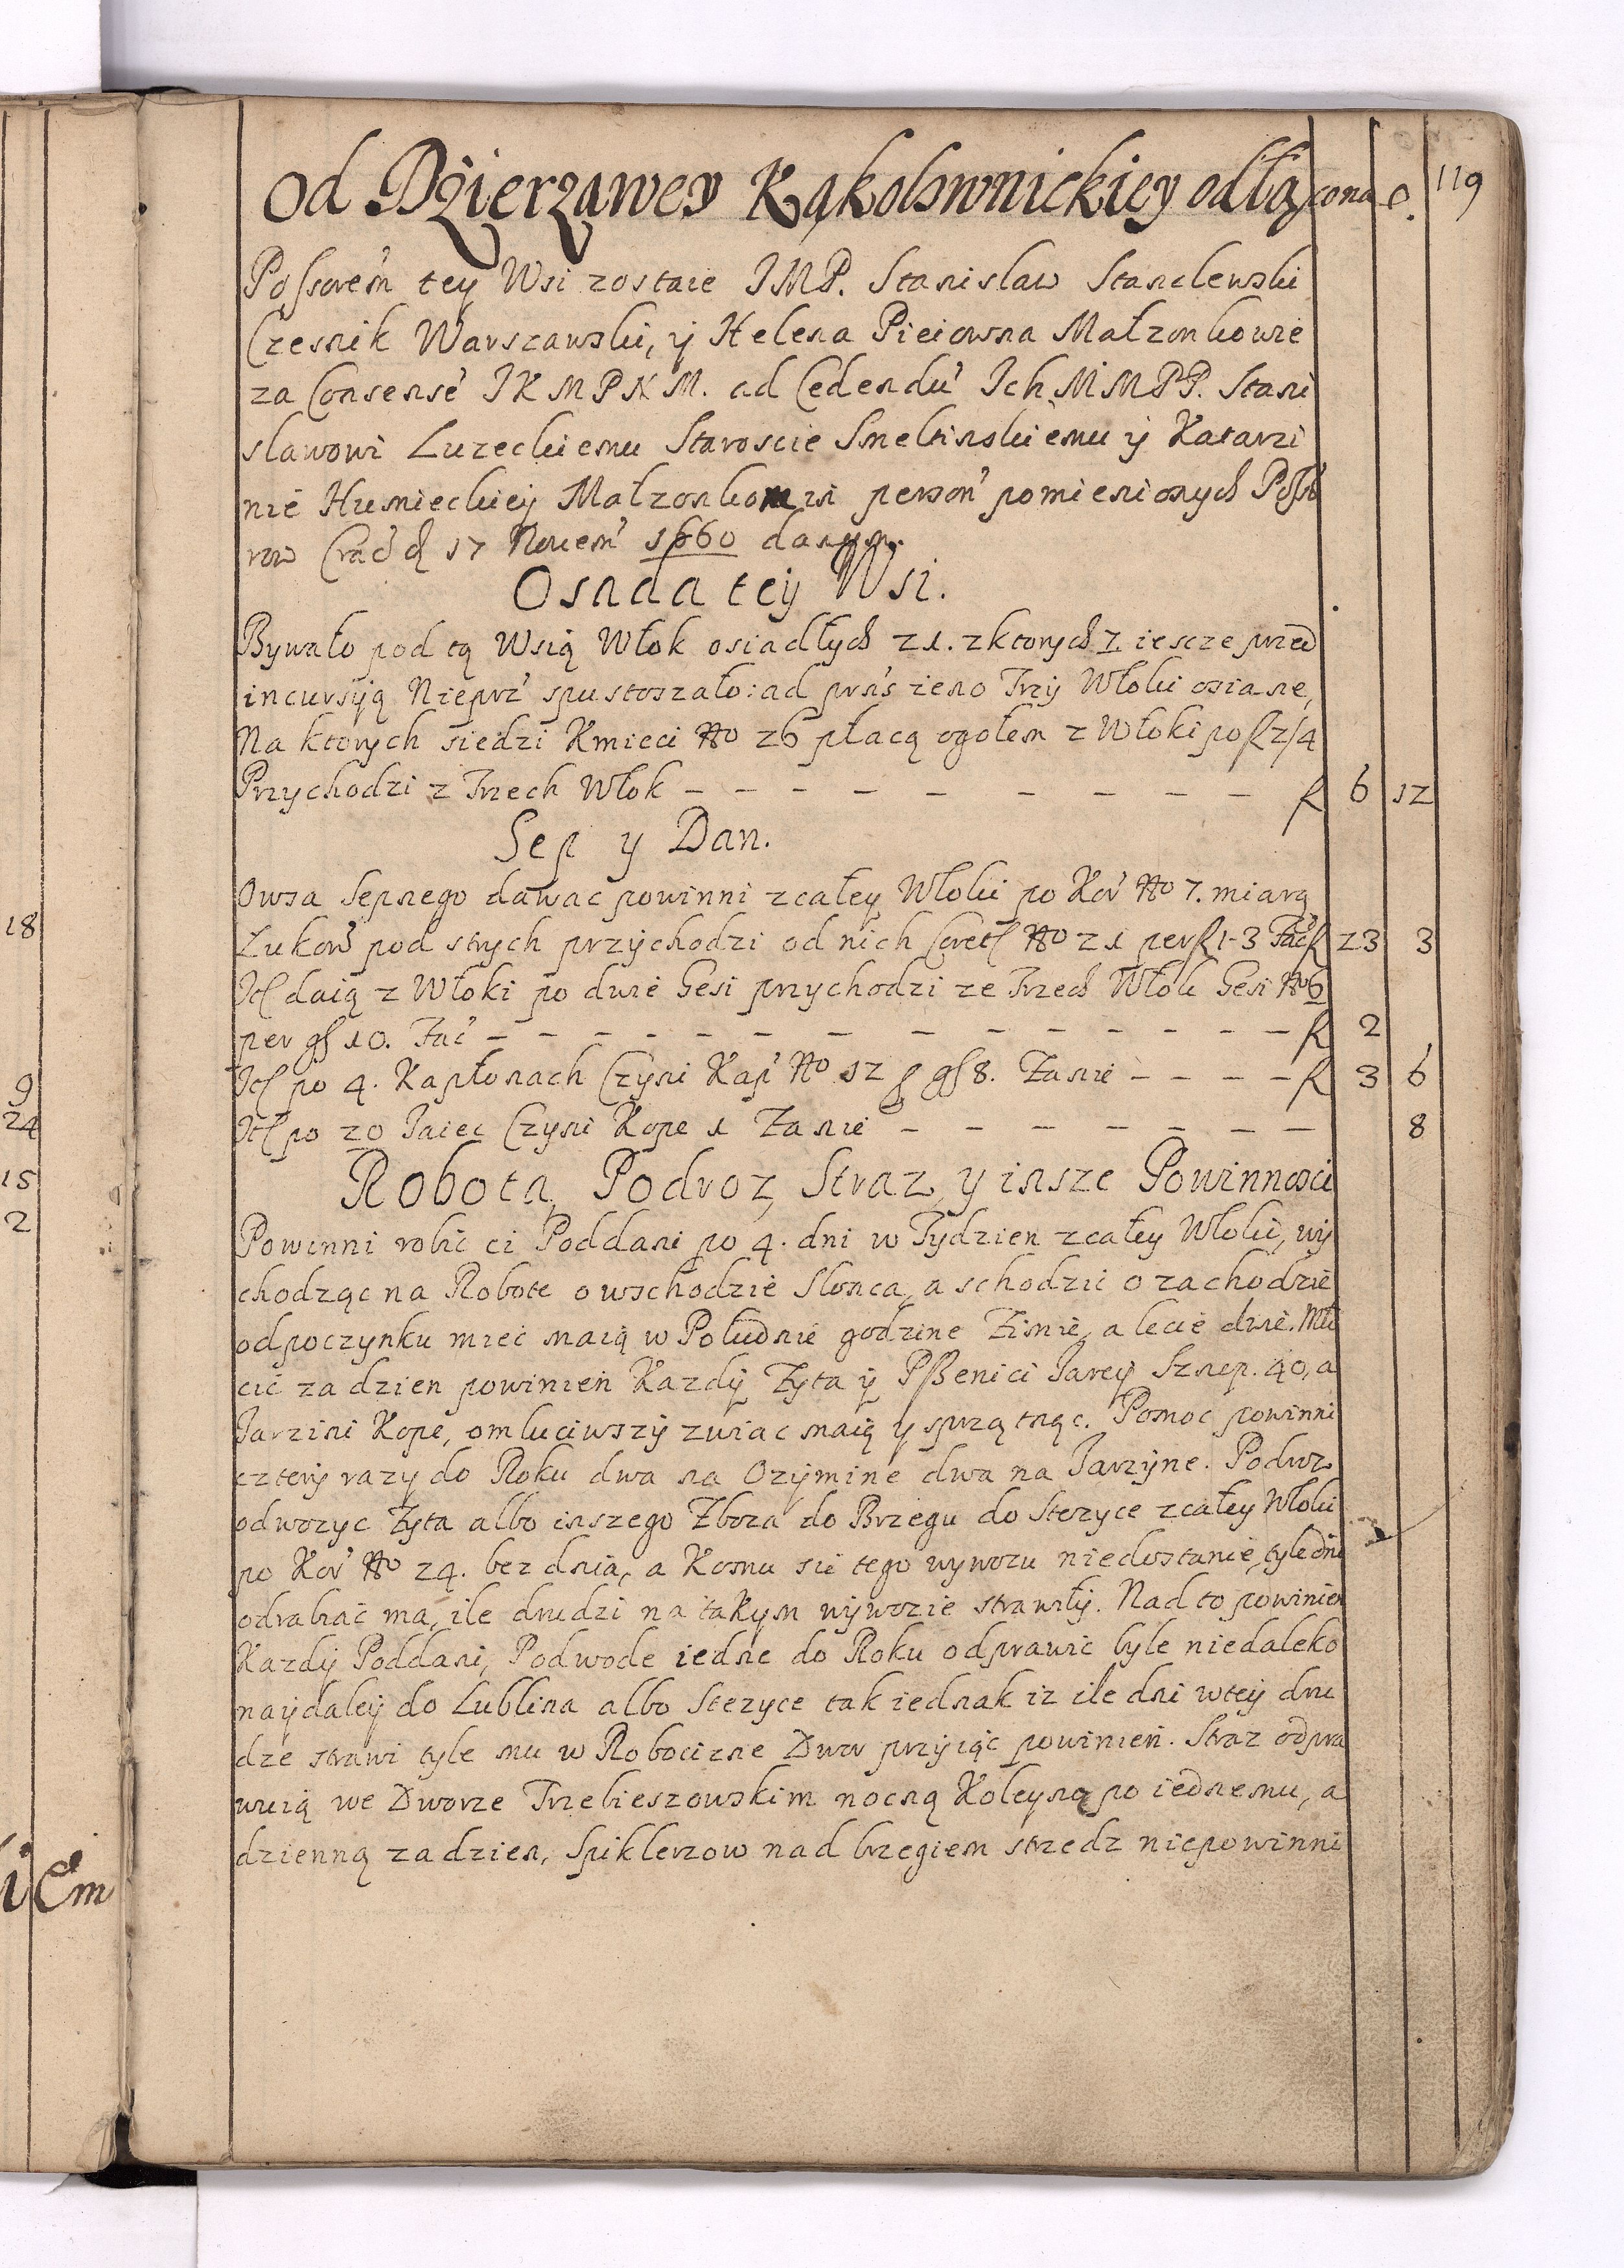 119
Od Dzierzawey Kąkolownickiey odłączona.
Possorem tey Wsi zostaie JMP. Stanislaw Stanclewski
Czesnik Warszawski, ÿ Helena Pieiowna Małzonkowie
za Consensé JKMPNM. ad Cedendũ Ich MMPP. Stani
slawowi Luzeckiemu Staroscie Smeltinskiemu ÿ Katarzi
nie Humieckieÿ Małzonkom zn person pomienionych Posses
row Crac̃ d 17 Nouem̃ 1660 danym.
Osada teÿ Wsi.
Bywało pod tą Wsią Włok osiadłych 21. z ktorych 7. iescze przed
incursÿą Nieprz̃ spustoszało: ad prñs zieno Trzÿ Włoki osiane,
Na ktorych siedzi Kmieci No 26 płacą ogołem z Włoki po f 2/4
Przychodzi z Trzech Włok - - - - - - - - - - f 6 12
Sep y Dan.
Owsa Sepnego dawac powinni z całey Włoki po Kor̃ No 7. miarą
Lukow̃ pod strych przychodzi od nich Coret No 21 per f 1-3 Fac̃ f 23 3
It daią z Włoki po dwie Gesi przychodzi ze Trzech Włok Gesi No 6
per gſ 10. Fac̃ - - - - - - - - - - - - f 2
It po 4. Kapłonach Czyni Kap̃ No 12 p gſ 8. Zanie - - - - f 3 6
It po 20 Jaiec Czyni Kope 1 Za nie - - - - - - - - 8
Robota, Podroz, Straz, y insze Powinnosci
Powinni robic ci Poddani po 4. dni w Tydzien z całey Włoki, wÿ
chodząc na Robote o wschodzie Slonca, a schodzic o zachodzie
odpoczynku miec maią w Południe godzine Zimie, a lecie dwie. Mło
cic za dzien powinien Kazdÿ Zyta ÿ Pszenici Jareÿ Sznep. 40, a
Jarzini Kope, omluciwszÿ zwiac maią y sprzątnąc. Pomoc powinni
czterÿ razy do Roku dwa na Ozÿmine dwa na Jarzÿne. Podwz
odwozyc Zyta albo inszego Zboza do Brzegu do Stezyce z całey Włoki
po Kor̃ No 24. bez dnia, a Komu sie tego wywozu niedostanie, tyle dni
odrabiac ma, ile drudzi na takym wÿwozie strawilÿ. Nad to powinien
Kazdÿ Poddani, Podwode iedne do Roku odprawic byle niedaleko
naÿdaleÿ do Lublina albo Stezyce tak iednak iz ile dni w teÿ dru
dze strawi tyle mu w Robociznę Dwor przÿiąc powinien. Straz odpra
wuią we Dworze Trzebieszowskim nocną Koleyną po iednemu, a
dzienną za dzien, Spiklerzow nad brzegiem strzedz niepowinni
18
9
24
15
2